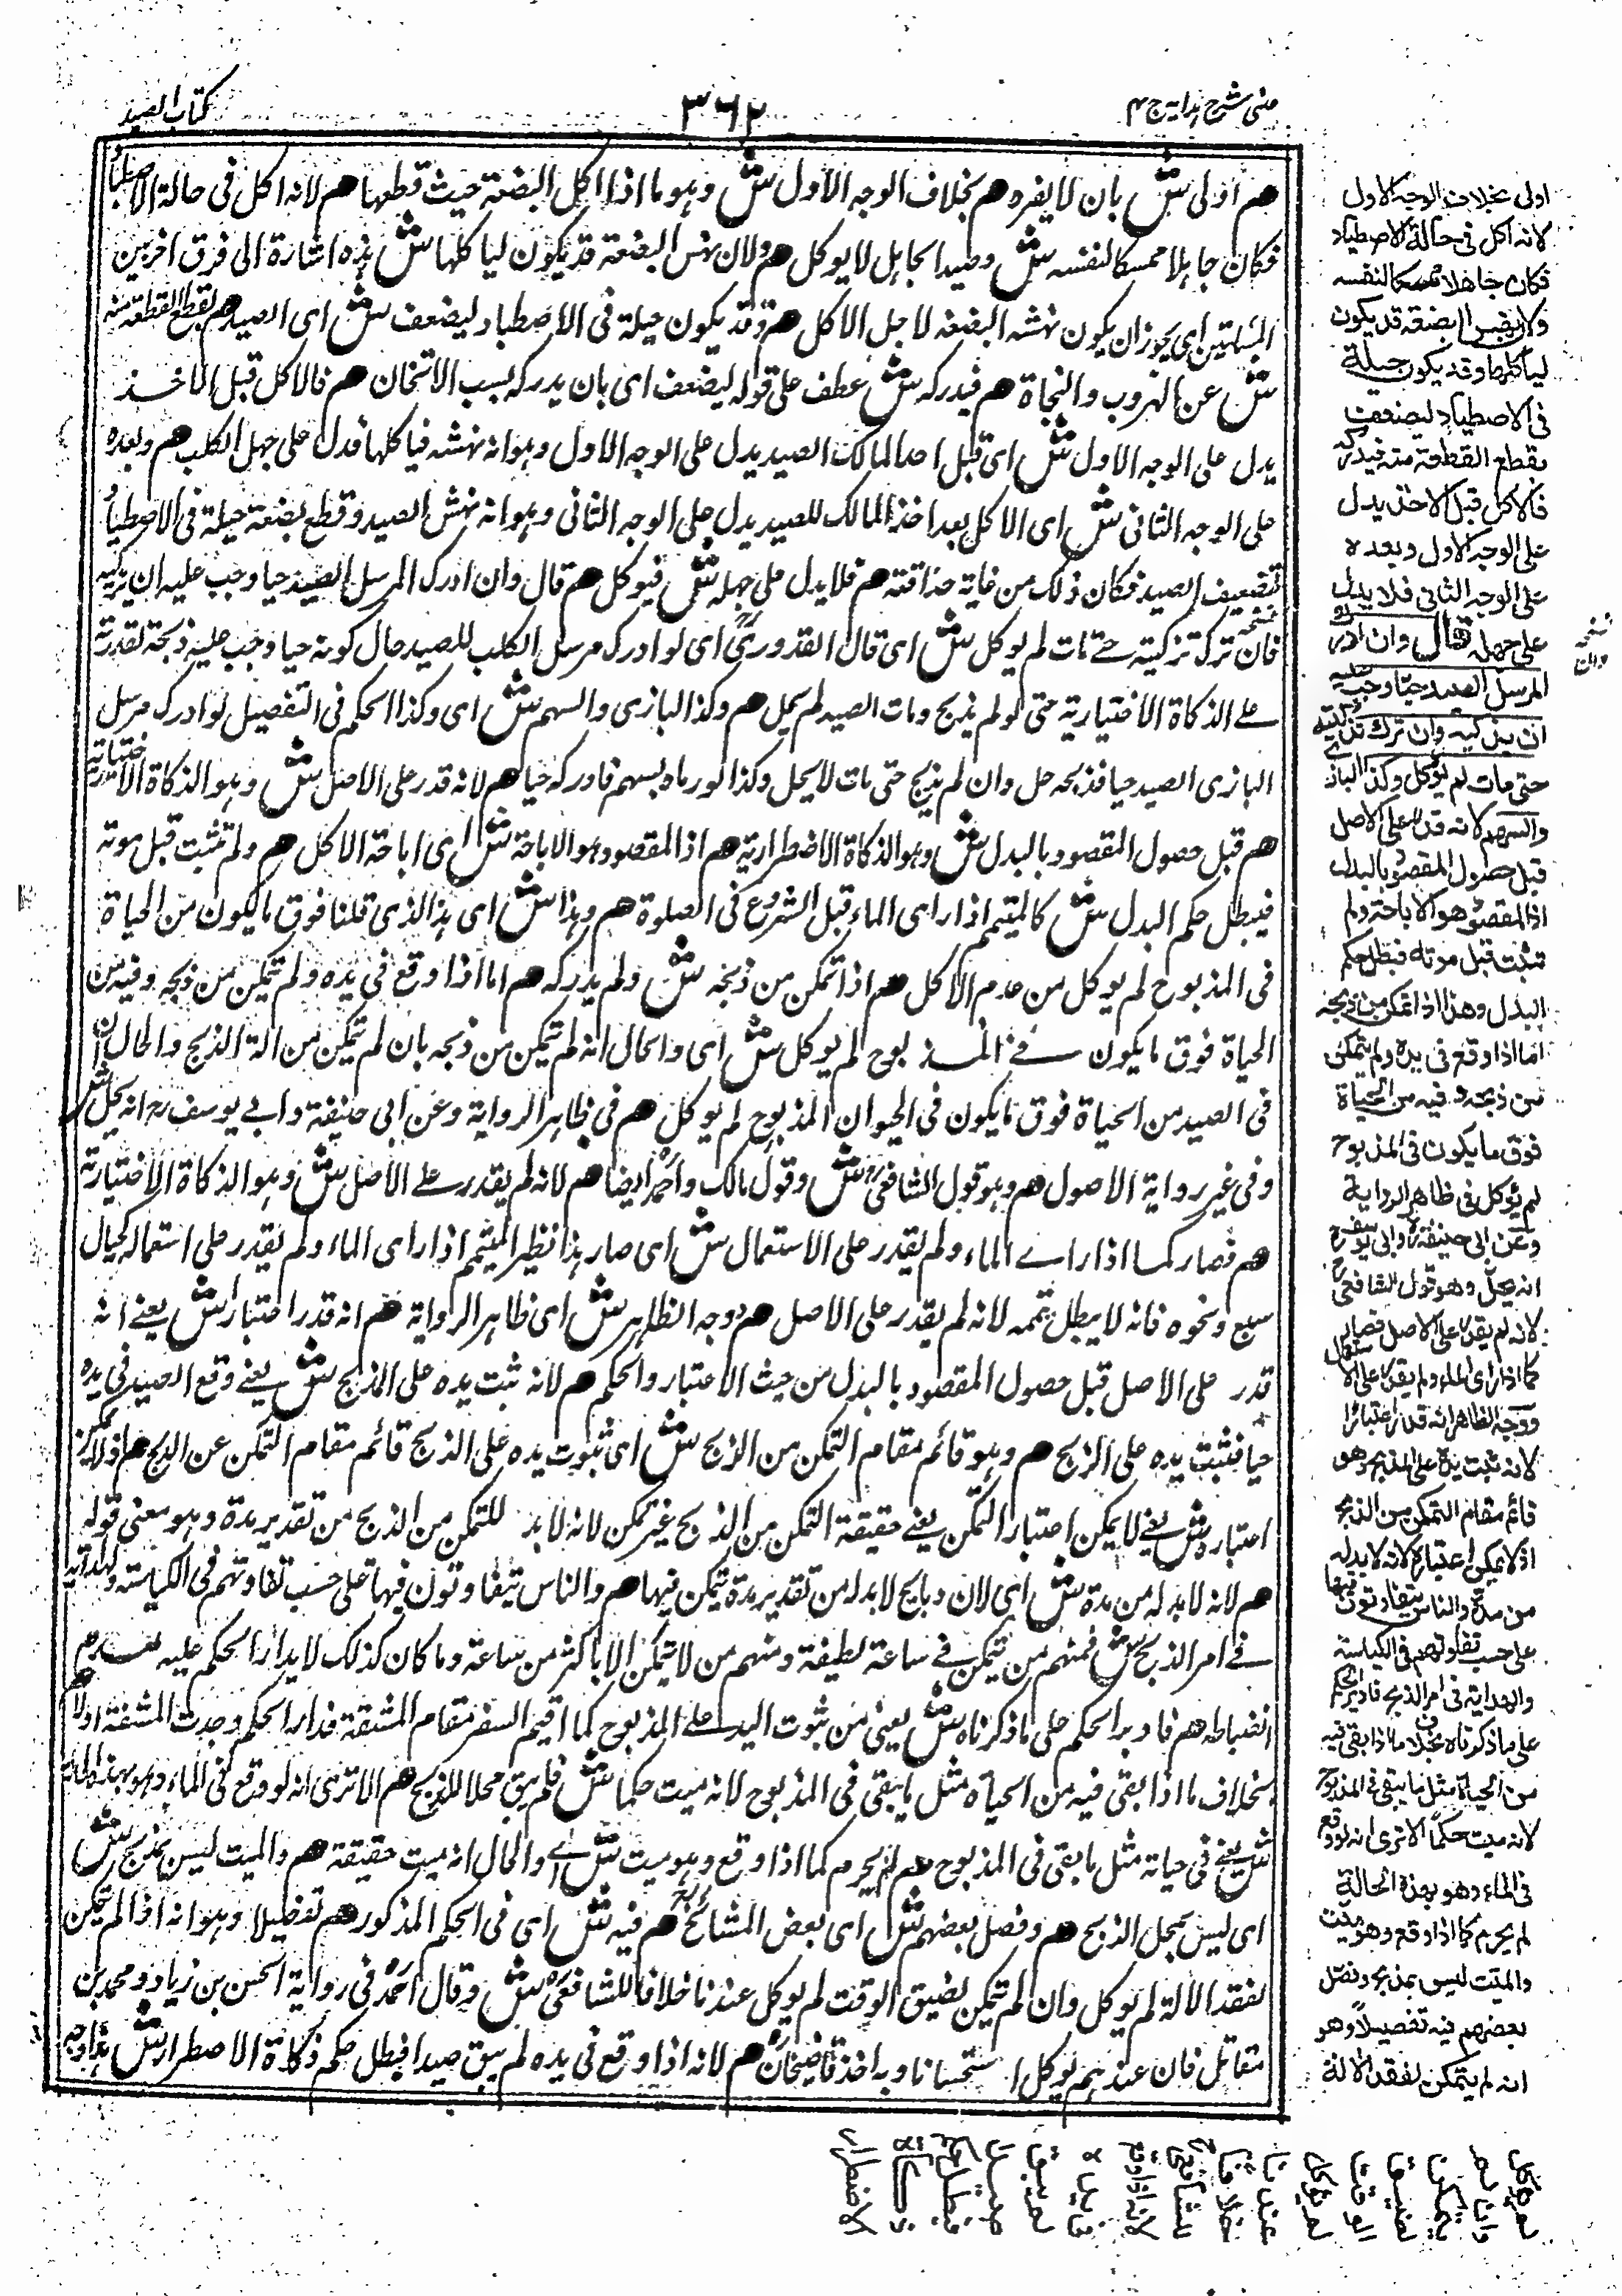 عینی شرح ہدایہ ج ۴
۳۶۲
کتاب الصید
هم اولی ش بان لا یضره هم بخلاف الوجه الاول ش وهو ما اذا اکل البضعة حیث قطعها هم لانه اکل فی حالة الاصطیاد
فکان جاهلا ممسکا لنفسه ش وصید الجاهل لا یوکل هم ولان نهس البضعة قد یکون لیاکلها ش هذه اشارة الی فرق اخر بین
المسئلتین ای یجوز ان یکون نهشه البضعة لاجل الاکل هم وقد یکون حیلة فی الاصطیاد لیضعف ش ای الصید هم بقطع القطعة منه
ش عن الهروب والنجاة هم فیدرکه ش عطف علی قوله لیضعف ای بان یدرکه بسبب الاثخان هم فالاکل قبل الاخذ
یدل علی الوجه الاول ش ای قبل اخذ المالک الصید یدل علی الوجه الاول وهو انه نهشه فیاکلها فدل علی جهل الکلب هم وبعده
علی الوجه الثانی ش ای الاکل بعد اخذ المالک للصید یدل علی الوجه الثانی وهو انه نهش الصید وقطع بضعة حیلة فی الاصطیاد
تضعیف الصید فکان ذلک من غایة حذاقته هم فلا یدل علی جهله ش فیوکل هم قال وان ادرک المرسل الصید حیا وجب علیه ان یزکیه
فان ترک تزکیته حتے مات لم یوکل ش ای قال القدوری ای لو ادرک مرسل الکلب للصید حال کونه حیا وجب علیه ذبحه لقدرته
علے الذکاة الاختیاریة حتی لو لم یذبح ومات الصید لم یحل هم وکذا البازی والسهم ش ای وکذا الحکم فی التفصیل لو ادرک مرسل
البازی الصید حیا فذبحه حل وان لم یذبح حتی مات لا یحل وکذا لو رماه بسهم فادرکه حیا هم لانه قدر علی الاصل ش وهو الذکاة الاختیاریة
هم قبل حصول المقصود بالبدل ش وهو الذکاة الاضطراریة هم اذ المقصود هو الاباحة ش ای اباحة الاکل هم ولم تثبت قبل موته
فیبطل حکم البدل ش کالمتیمم اذا رای الماء قبل الشروع فی الصلوة هم وهذا ش ای هذا الذی قلنا فوق ما یکون من الحیاة
فی المذبوح لم یوکل من عدم الاکل هم اذا تمکن من ذبحه ش ولم یدرکه هم اما اذا وقع فی یده ولم یتمکن من ذبحه وفیه من
الحیاة فوق ما یکون فے المذبوح لم یوکل ش ای والحال انه لم یتمکن من ذبحه بان لم یتمکن من الة الذبح والحال ان
فی الصید من الحیاة فوق ما یکون فی الحیوان المذبوح لم یوکل هم فی ظاهر الروایة وعن ابی حنیفة وابے یوسف رح انه یحل ش
وفی غیر روایة الاصول هم وهو قول الشافعی ش وقول مالک واحمد ایضا هم لانه لم یقدر علے الاصل ش وهو الذکاة الاختیاریة
هم فصار کما اذا رأے الماء ولم یقدر علی الاستعمال ش ای صار هذا نظیر المتیمم اذا رای الماء ولم یقدر علی استعماله لحیال
سبع ونحوه فانه لا یبطل تیممه لانه لم یقدر علی الاصل هم وجه الظاهر ش ای ظاهر الروایة هم انه قدر اعتبارا ش یعنے انه
قدر علی الاصل قبل حصول المقصود بالبدل من حیث الاعتبار والحکم هم لانه ثبت یده علی المذبح ش یعنے وقع الصید فی یده
حیا فثبت یده علی الذبح هم وهو قائم مقام التمکن من الذبح ش ای ثبوت یده علی الذبح قائم مقام التمکن عن الذبح هم اذ لا یمکن
اعتباره ش یعنے لا یمکن اعتبار التمکن یعنے حقیقة التمکن من الذبح غیر ممکن لانه لا بد للتمکن من الذبح من تقدیر مدة وهو معنی قوله
هم لانه لا بد له من مدة ش ای لان ذبائح لا بد له من تقدیر مدة یتمکن فیها هم والناس یتفاوتون فیها علی حسب تفاوتهم فی الکیاسة والهدایة
فے امر الذبح ش فمنهم من یتمکن فے ساعة لطیفة ومنهم من لا یتمکن الا باکثر من ساعة وما کان کذلک لا یدار الحکم علیه لعدم
انضباطه هم فادیر الحکم علی ما ذکرناه ش یعنی من ثبوت الید علے المذبوح کما اقیم السفر مقام المشقة فدار الحکم وجدت المشقة اولا هم
بخلاف ما اذا بقی فیه من الحیاة مثل ما یبقی فی المذبوح لانه میت حکما ش فلم یبق محلا للذبح هم الا تری انه لو وقع فی الماء وهو بهذه الحالة
ش یعنے فی حیاته مثل ما بقی فی المذبوح هم لم یحرم کما اذا وقع وهو میت ش اے والحال انه میت حقیقة هم والمیت لیس بمذبح ش
ای لیس بمحل الذبح هم وفصل بعضهم ش ای بعض المشائخ هم فیه ش ای فی الحکم المذکور هم تفصیلا وهو انه اذا لم یتمکن
لفقد الالة لم یوکل وان لم یتمکن لضیق الوقت لم یوکل عندنا خلافا للشافعی ش وقال احمد فی روایة الحسن بن زیاد ومحمد بن
مقاتل فان عندهم یوکل استحسانا وبه اخذ قاضیخان هم لانه اذا وقع فی یده لم یبق صیدا فبطل حکم ذکاة الاضطرار ش هذا وجه
اولی بخلاف الوجه الاول
لانه اکل فی حالة الاصطیاد
فکان جاهلا ممسکا لنفسه
ولان نهس البضعة قد یکون
لیاکلها وقد یکون حیلة
فی الاصطیاد لیضعف
بقطع القطعة منه فیدرکه
فالاکل قبل الاخذ یدل
علی الوجه الاول وبعده
علی الوجه الثانی فلا یدل
علی جهله قال وان ادرک
المرسل الصید حیا وجب علیه
ان یذکیه وان ترک تذکیته
حتی مات لم یؤکل وکذا البازی
والسهم لانه قدر علی الاصل
قبل حصول المقصود بالبدل
اذ المقصود هو الاباحة ولم
تثبت قبل موته فبطل حکم
البدل وهذا اذا تمکن من ذبحه
اما اذا وقع فی یده ولم یتمکن
من ذبحه وفیه من الحیاة
فوق ما یکون فی المذبوح
لم یؤکل فی ظاهر الروایة
وعن ابی حنیفة وابی یوسف رح
انه یحل وهو قول الشافعی
لانه لم یقدر علی الاصل فصار
کما اذا رای الماء ولم یقدر علی الاستعمال
ووجه الظاهر انه قدر اعتبارا
لانه ثبت یده علی المذبح وهو
قائم مقام التمکن من الذبح
اذ لا یمکن اعتباره لانه لا بد له
من مدة والناس یتفاوتون فیها
علی حسب تفاوتهم فی الکیاسة
والهدایة فی امر الذبح فادیر الحکم
علی ما ذکرناه بخلاف ما اذا بقی فیه
من الحیاة مثل ما یبقی فی المذبوح
لانه میت حکما الا تری انه لو وقع
فی الماء وهو بهذه الحالة
لم یحرم کما اذا وقع وهو میت
والمیت لیس بمذبح وفصل
بعضهم فیه تفصیلا وهو
انه لم یتمکن لفقد الالة
لم یؤکل
وان لم
یتمکن
لضیق
الوقت
لم یؤکل
عندنا
خلافا
للشافعی
لانه اذا وقع
فی یده
لم یبق
صیدا
فبطل حکم
ذکاة
الاضطرار